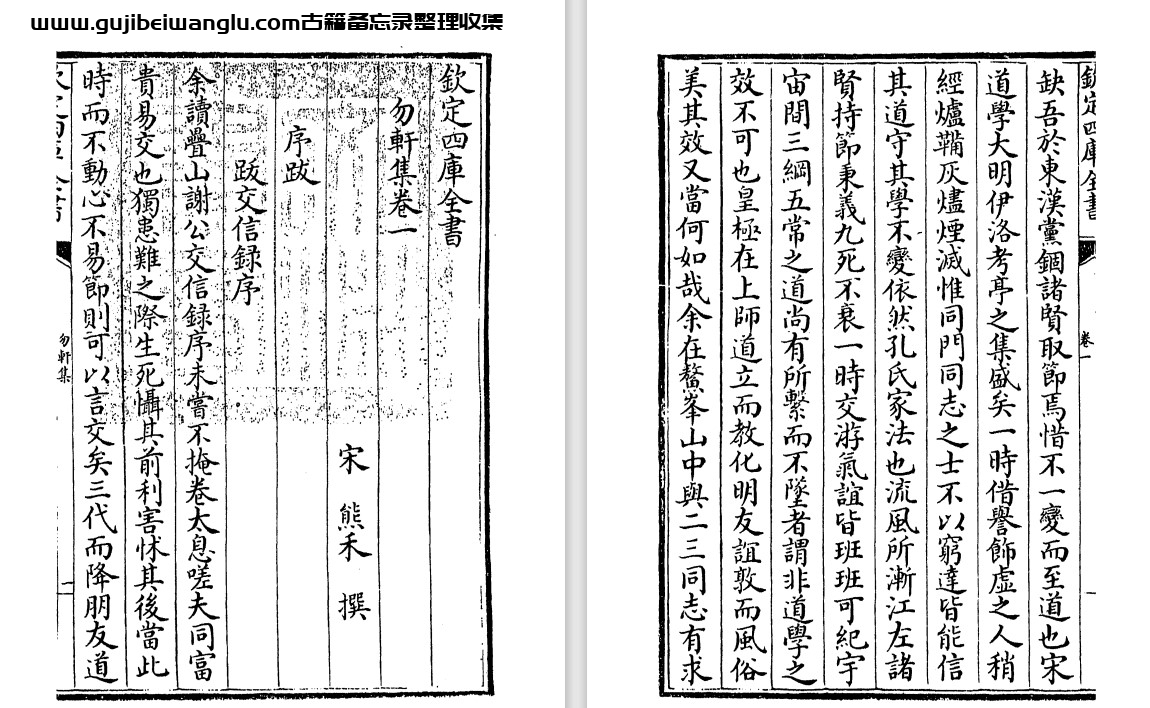 www.gujibeiwanglu.com古籍备忘录整理收集
欽定四庫全書
勿軒集卷一
宋 熊禾 撰
序跋
跋交信録序
余讀疊山謝公交信録序未嘗不掩卷太息嗟夫同富
貴易交也獨患難之際生死懾其前利害怵其後當此
時而不動心不易節則可以言交矣三代而降朋友道
勿軒集
一
欽定四庫全書
卷一
缺吾於東漢黨錮諸賢取節焉惜不一變而至道也宋
道學大明伊洛考亭之集盛矣一時借譽飾虚之人稍
經爐鞴灰燼煙滅惟同門同志之士不以窮達皆能信
其道守其學不變依然孔氏家法也流風所漸江左諸
賢持節秉義九死不衰一時交游氣誼皆班班可紀宇
宙間三綱五常之道尚有所繫而不墜者謂非道學之
效不可也皇極在上師道立而教化明友誼敦而風俗
美其效又當何如哉余在鰲峯山中與二三同志有求